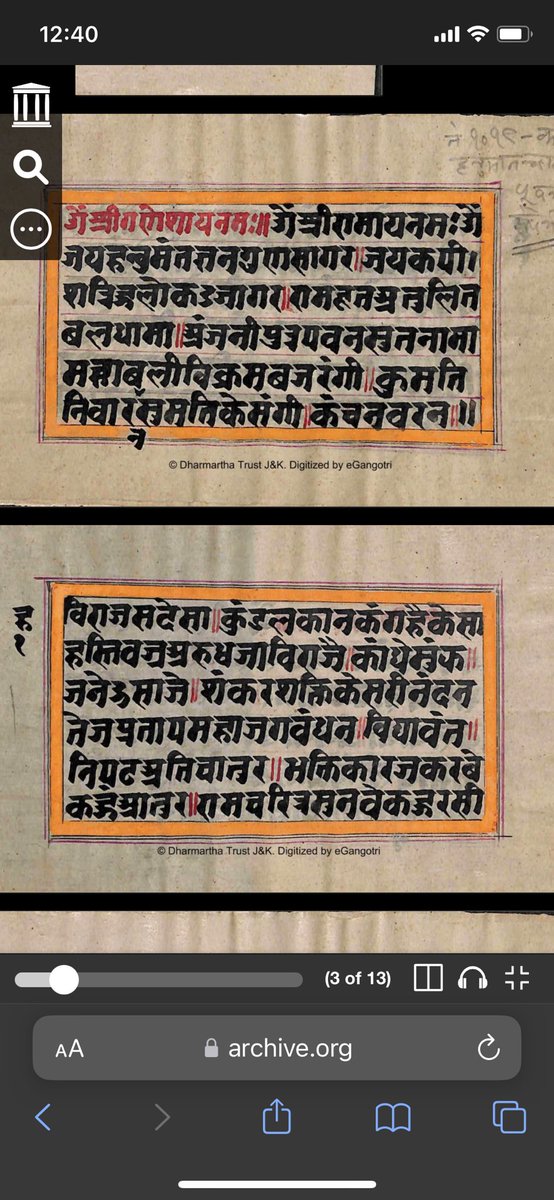 12:40
ॐ श्रीगणेशायनमः॥ॐ श्रीरामायनमःॐ
जयहनुमंतत्तनगुणसागर॥जयकपी।
शत्रिङ्गलोकउजागर॥रामहतअतुलित
बलधामा॥अंजनीपुत्रपवनसुतनामा
महाबलीविक्रमबजरंगी॥कुमति
निवारसुमतिकेसंगी॥कंचनवरन॥॥
न
© Dharmartha Trust J&K. Digitized by eGangotri
ह
१
विराजसदेसा॥कुंडलकानकंगहैकेसा
हस्तिवज्रअरुधजाविराजै॥कांधेमुंफ॥
जनेउसाजे॥शंकरशक्तिकेसरीनंदन
तेजप्रतापमहाजगवंधन॥विद्यावंत॥
निपटअतिचातुर॥भक्तिकारजकरबे
कहेआतुर॥रामचरित्रसुनवेकहरसी
© Dharmartha Trust J&K. Digitized by eGangotri
(3 of 13)
AA archive.org